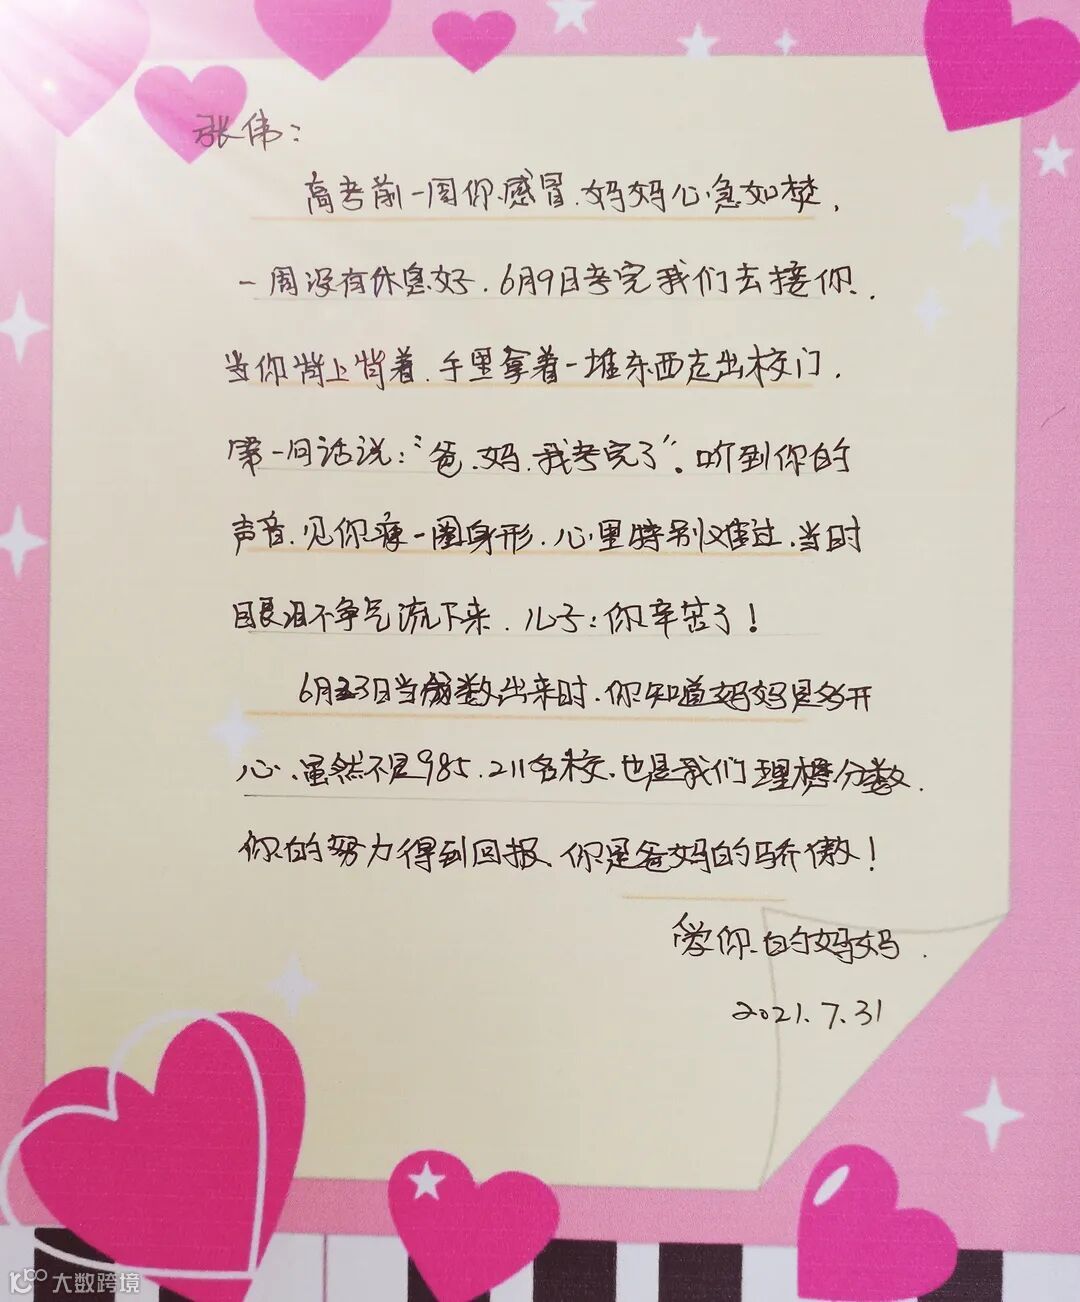 张伟：
高考前一周你感冒、妈妈心急如焚，
一周没有休息好．6月9日考完我们去接你．
当你背上背着．手里拿着一堆东西走出校门．
第一句话说：“爸．妈．我考完了”。听到你的
声音．见你瘦一圈身形．心里特别难过．当时
眼泪不争气流下来．儿子：你辛苦了！
6月23日当成数出来时．你知道妈妈是多开
心、虽然不是985．211名校．也是我们理想分数．
你的努力得到回报、你是爸妈的骄傲！
爱你的妈妈．
2021.7.31
大数跨境